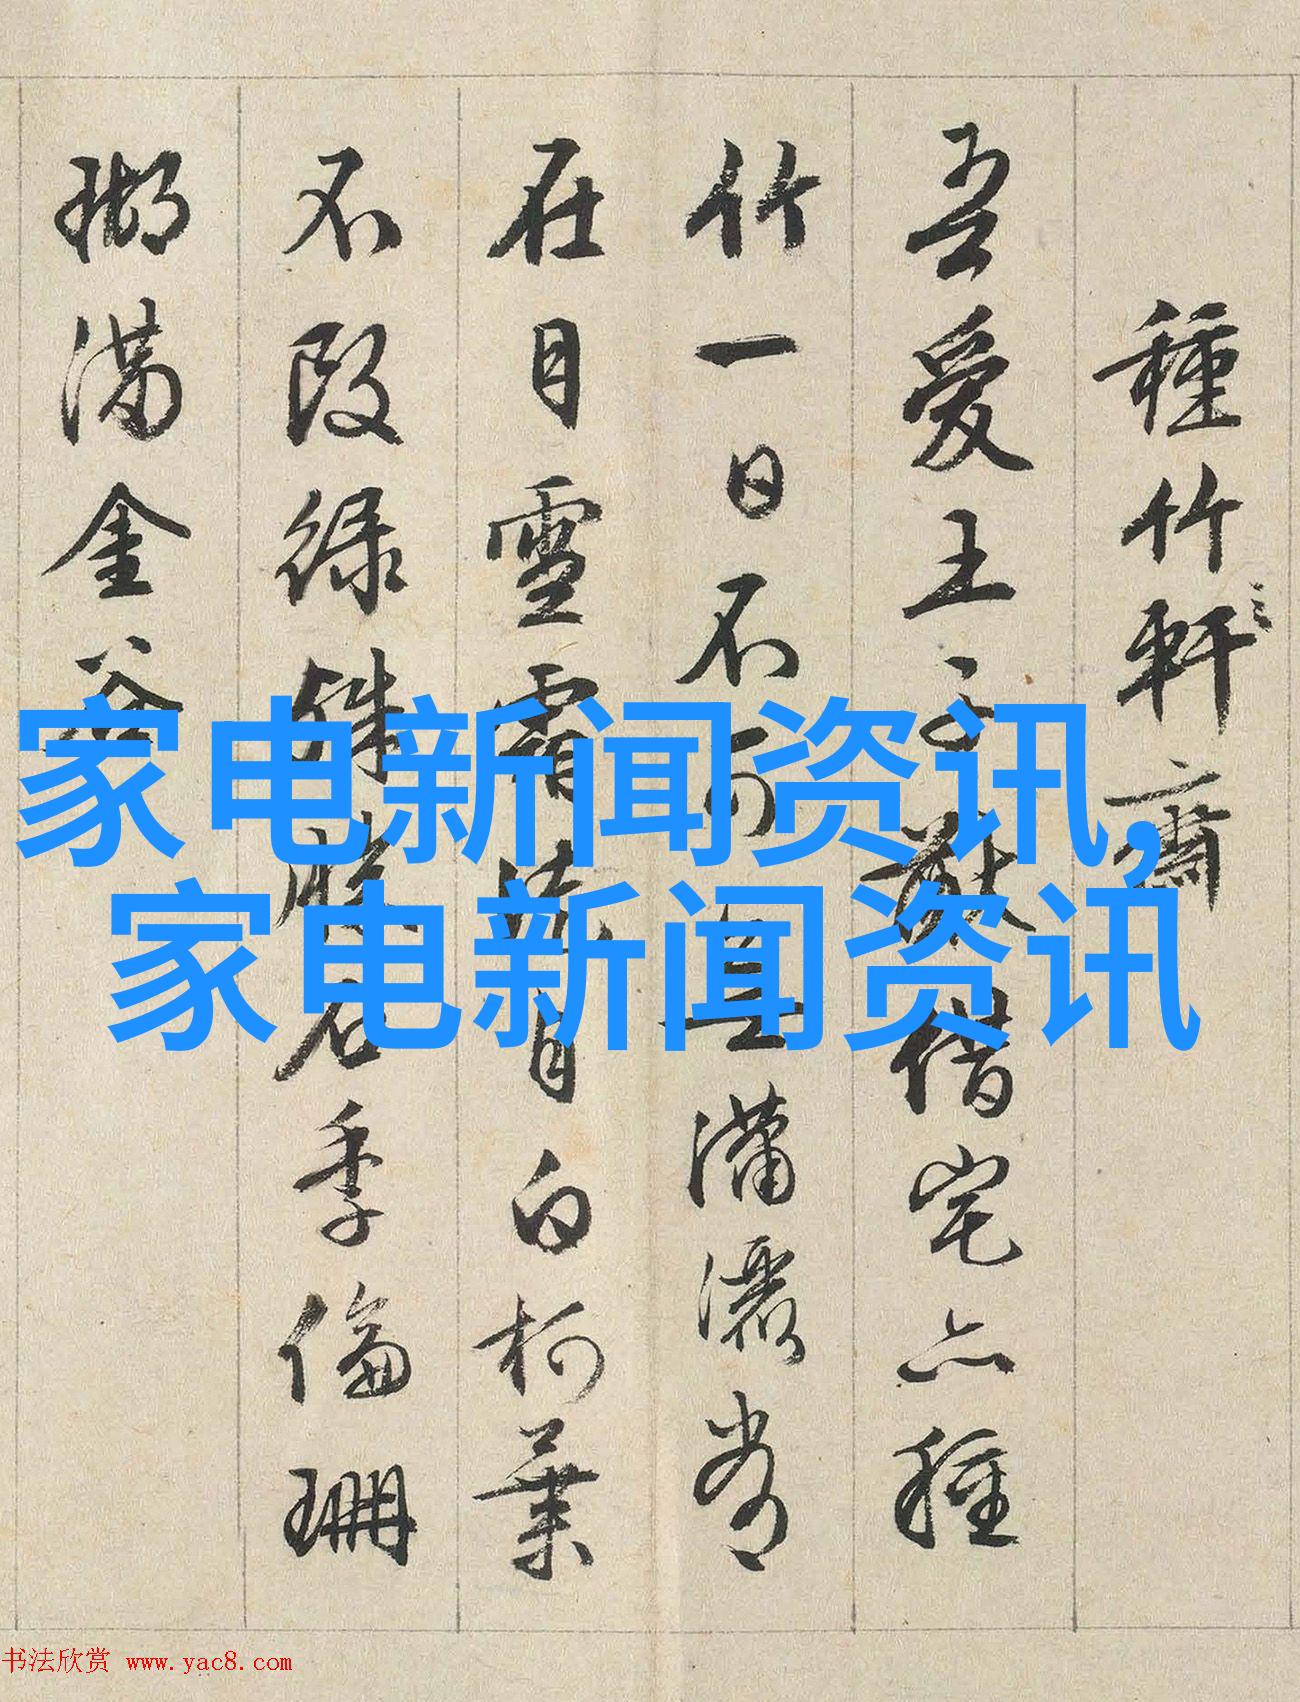 種竹軒齋
吾愛王子猷借宅亦種
竹一日不可無瀟灑常
在目雪霜徒自白柯葉
不改綠殊勝石季倫珊
瑚滿金谷
家电新闻资讯,
家电新闻资讯
书法欣赏 www.yac8.com